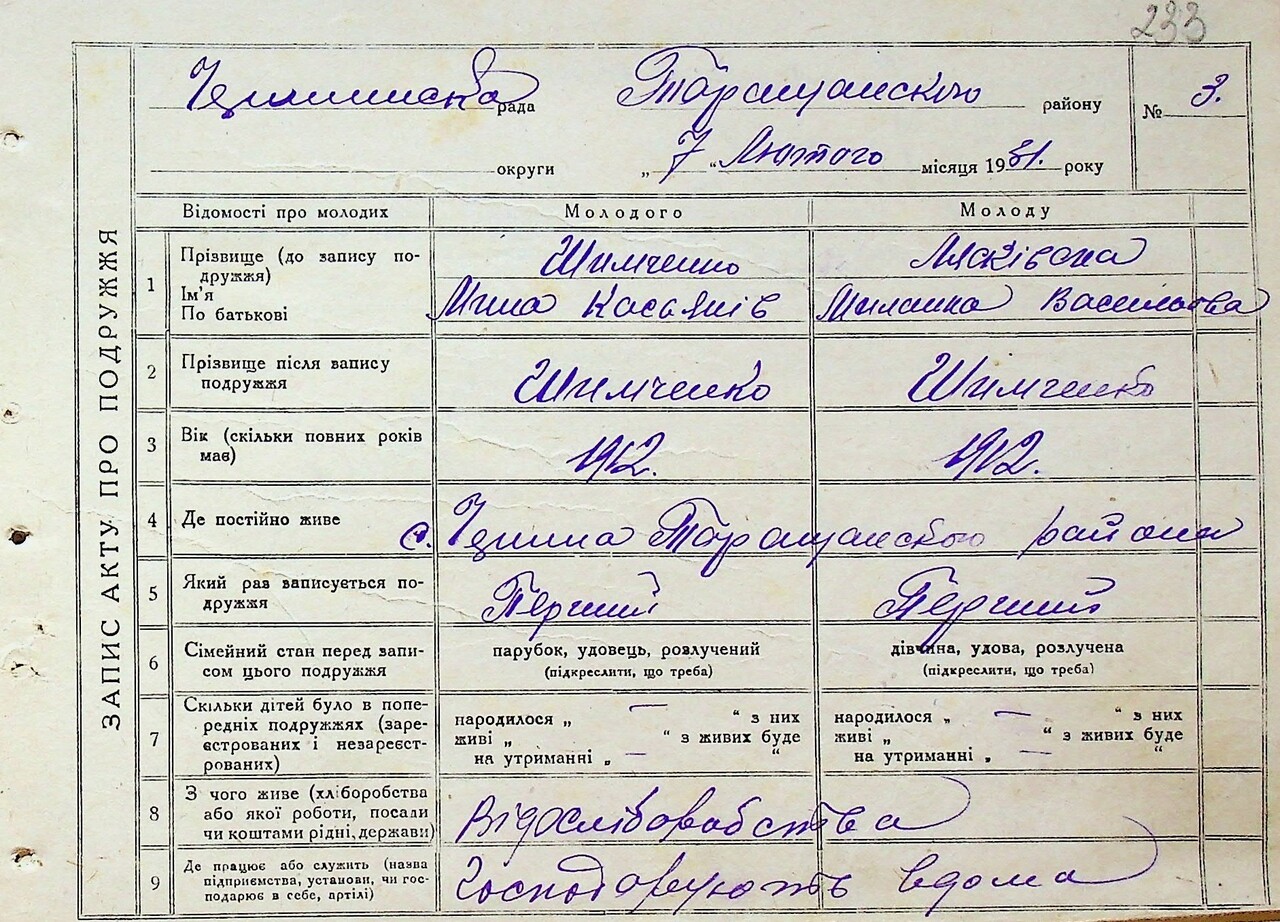 233
ЗАПИС АКТУ ПРО ПОДРУЖЖЯ
рада Таращанского району № 3.
округи „ 7 “ Лютого місяця 1931. року
Відомості про молодих Молодого Молоду
1 Прізвище (до запису по-
дружжя) Шимченко
Ім'я
По батькові Мина Касьянів Миланка Василіова
2 Прізвище після запису
подружжя Шимченко Шимченко
3 Вік (скільки повних років
має) 1912. 1912.
4 Де постійно живе с. Таращанского района
5 Який раз записується по-
дружжя Перший Перший
6 Сімейний стан перед запи-
сом цього подружжя
парубок, удовець, розлучений дівчина, удова, розлучена
(підкреслити, що треба) (підкреслити, що треба)
7 Скільки дітей було в попе-
редніх подружжях (заре-
єстрованих і незареєст-
рованих)
народилося „ — “ з них народилося „ — “ з них
живі „ “ з живих буде живі „ “ з живих буде
на утриманні „ — “ на утриманні „ — “
8 З чого живе (хліборобства
або якої роботи, посади
чи коштами рідні, держави)
9 Де працює або служить (назва
підприємства, установи, чи гос-
подарює в себе, артілі) Господарюють вдома